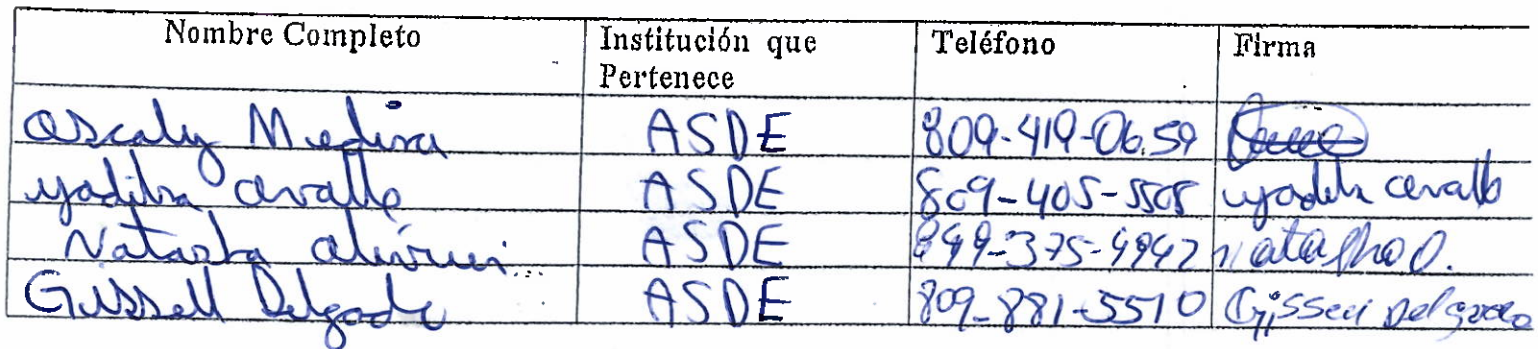 Nombre Completo Institución que Pertenece Teléfono Firma
Oscaly Medina ASDE 809-419-06.59
yadilza cevallo ASDE 809-405-5505 cevallo
Natasha ASDE 849-375-4942 Natasha O.
Gissell Delgado ASDE 809-881-5510 Gissell Delgado